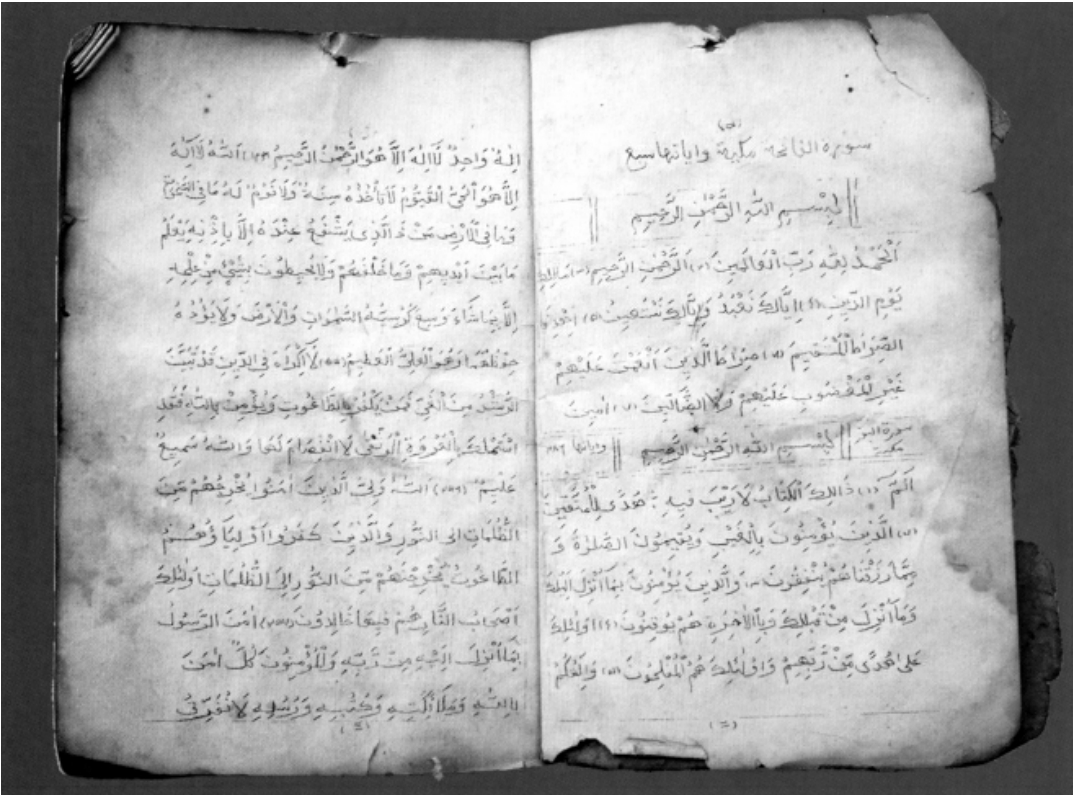 سورة الفاتحة مكية وآياتها سبع
بِسْمِ اللهِ الرَّحْمٰنِ الرَّحِيمِ
اَلْحَمْدُ لِلّٰهِ رَبِّ الْعَالَمِينَ (٢) اَلرَّحْمٰنِ الرَّحِيمِ (٣) مَالِكِ
يَوْمِ الدِّينِ (٤) اِيَّاكَ نَعْبُدُ وَاِيَّاكَ نَسْتَعِينُ (٥) اِهْدِنَا
الصِّرَاطَ الْمُسْتَقِيمَ (٦) صِرَاطَ الَّذِينَ اَنْعَمْتَ عَلَيْهِمْ
غَيْرِ الْمَغْضُوبِ عَلَيْهِمْ وَلَا الضَّالِّينَ (٧) اٰمِينَ
سورة البقرة مكية بِسْمِ اللهِ الرَّحْمٰنِ الرَّحِيمِ وآياتها ٢٨٦
الٓمٓ (١) ذَالِكَ الْكِتَابُ لَا رَيْبَ فِيهِ : هُدًى لِلْمُتَّقِينَ
(٢) الَّذِينَ يُؤْمِنُونَ بِالْغَيْبِ وَيُقِيمُونَ الصَّلٰوةَ وَ
مِمَّا رَزَقْنَاهُمْ يُنْفِقُونَ (٣) وَالَّذِينَ يُؤْمِنُونَ بِمَا اُنْزِلَ اِلَيْكَ
وَمَا اُنْزِلَ مِنْ قَبْلِكَ وَبِالْاٰخِرَةِ هُمْ يُوقِنُونَ (٤) اُولٰئِكَ
عَلٰى هُدًى مِّنْ رَّبِّهِمْ وَاُولٰئِكَ هُمُ الْمُفْلِحُونَ (٥) وَاِلٰهُكُمْ
(٢)
اِلٰهٌ وَاحِدٌ لَا اِلٰهَ اِلَّا هُوَ الرَّحْمٰنُ الرَّحِيمُ (١٦٣) اَللهُ لَا اِلٰهَ
اِلَّا هُوَ الْحَيُّ الْقَيُّومُ لَا تَأْخُذُهُ سِنَةٌ وَلَا نَوْمٌ لَهُ مَا فِي السَّمٰوَاتِ
وَمَا فِي الْاَرْضِ مَنْ ذَا الَّذِي يَشْفَعُ عِنْدَهُ اِلَّا بِاِذْنِهِ يَعْلَمُ
مَا بَيْنَ اَيْدِيهِمْ وَمَا خَلْفَهُمْ وَلَا يُحِيطُونَ بِشَيْءٍ مِنْ عِلْمِهِ
اِلَّا بِمَا شَاءَ وَسِعَ كُرْسِيُّهُ السَّمٰوَاتِ وَالْاَرْضَ وَلَا يَؤُدُهُ
حِفْظُهُمَا وَهُوَ الْعَلِيُّ الْعَظِيمُ (٢٥٥) لَا اِكْرَاهَ فِي الدِّينِ قَدْ تَبَيَّنَ
الرُّشْدُ مِنَ الْغَيِّ فَمَنْ يَكْفُرْ بِالطَّاغُوتِ وَيُؤْمِنْ بِاللهِ فَقَدِ
اسْتَمْسَكَ بِالْعُرْوَةِ الْوُثْقٰى لَا انْفِصَامَ لَهَا وَاللهُ سَمِيعٌ
عَلِيمٌ (٢٥٦) اَللهُ وَلِيُّ الَّذِينَ اٰمَنُوا يُخْرِجُهُمْ مِنَ
الظُّلُمَاتِ اِلَى النُّورِ وَالَّذِينَ كَفَرُوا اَوْلِيَاؤُهُمُ
الطَّاغُوتُ يُخْرِجُونَهُمْ مِنَ النُّورِ اِلَى الظُّلُمَاتِ اُولٰئِكَ
اَصْحَابُ النَّارِ هُمْ فِيهَا خَالِدُونَ (٢٥٧) اٰمَنَ الرَّسُولُ
بِمَا اُنْزِلَ اِلَيْهِ مِنْ رَّبِّهِ وَالْمُؤْمِنُونَ كُلٌّ اٰمَنَ
بِاللهِ وَمَلٰئِكَتِهِ وَكُتُبِهِ وَرُسُلِهِ لَا نُفَرِّقُ